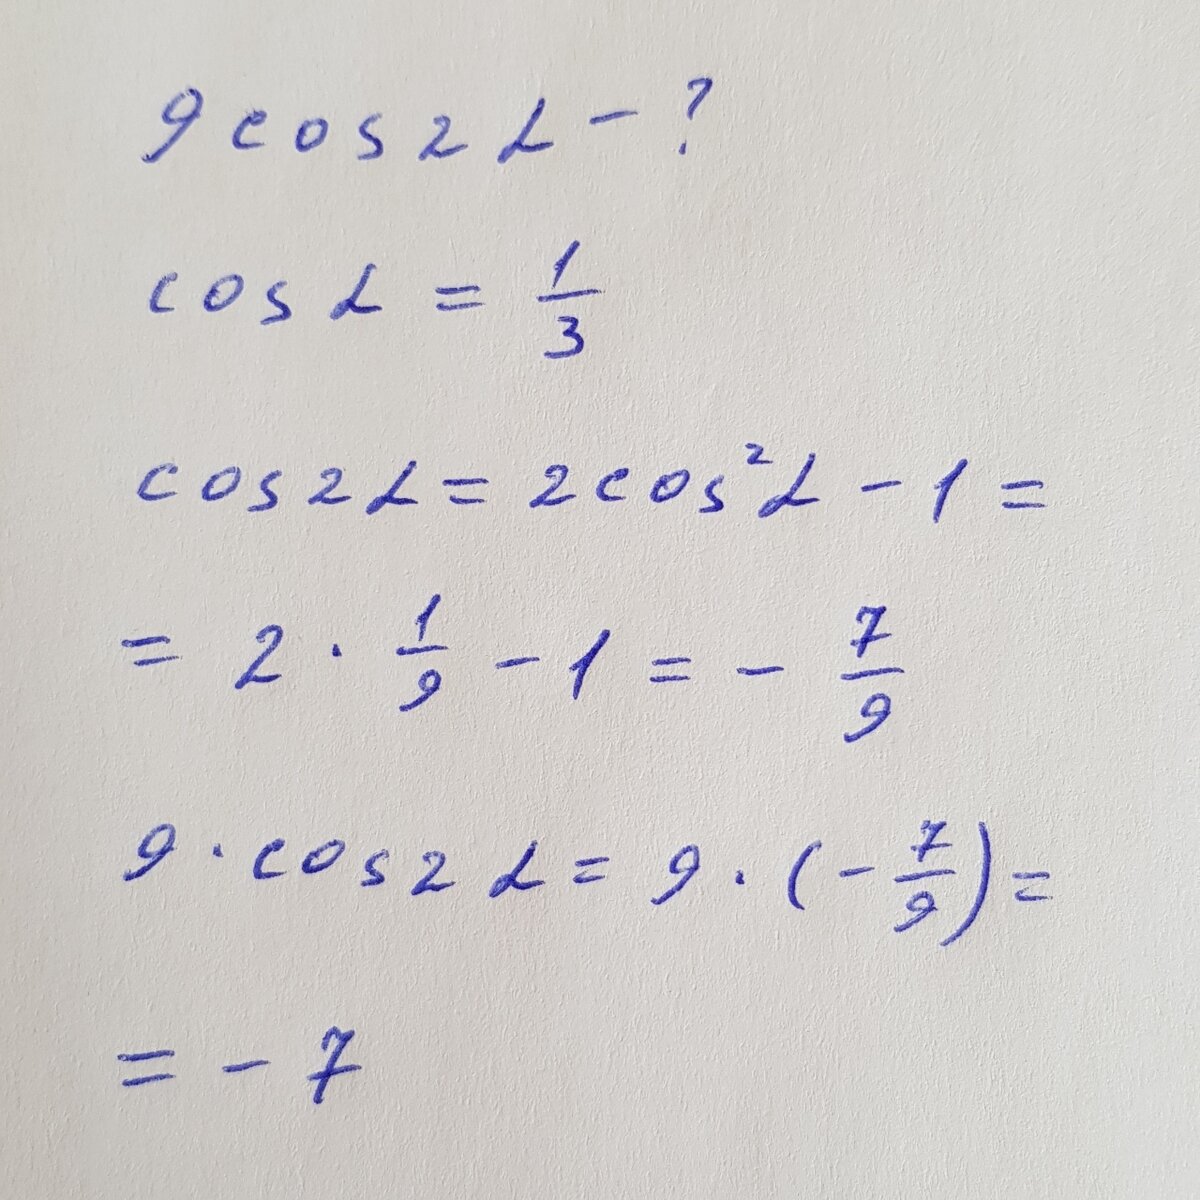 9 cos 2α - ?
cos α = 1/3
cos 2α = 2 cos²α - 1 =
= 2 · 1/9 - 1 = - 7/9
9 · cos 2α = 9 · (- 7/9) =
= - 7